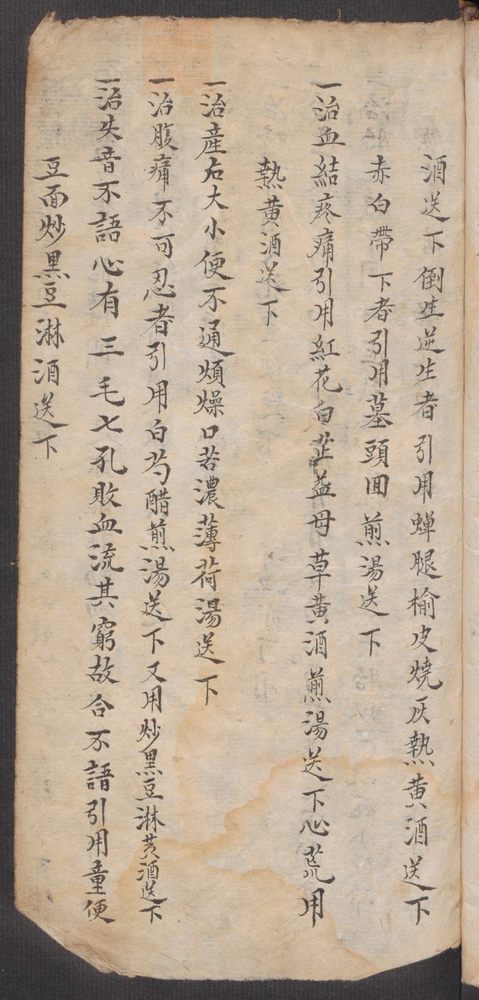 酒送下倒生逆生者引用蟬腿榆皮燒灰熱黄酒送下
赤白帶下者引用墓頭回煎湯送下
一治血結疼痛引用紅花白芷益母草黄酒煎湯送下心荒用
熱黄酒送下
一治產后大小便不通煩燥口苦濃薄荷湯送下
一治腹痛不可忍者引用白芍醋煎湯送下又用炒黑豆淋黄酒送下
一治失音不語心有三毛七孔敗血流其竅故合不語引用童便
豆面炒黑豆淋酒送下